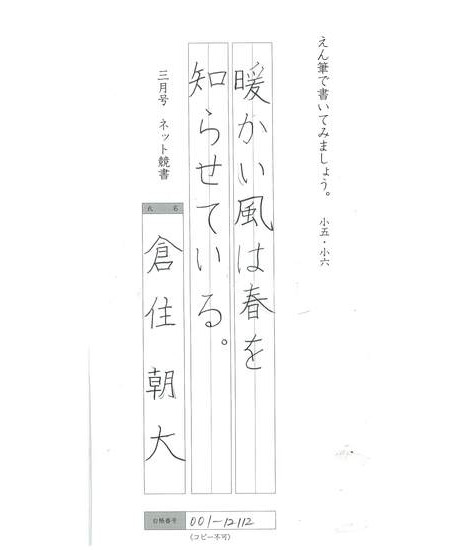 えん筆で書いてみましょう。 小五・小六
暖かい風は春を
知らせている。
三月号 ネット競書
氏名
倉住朝大
合格番号 001-12112
(コピー不可)